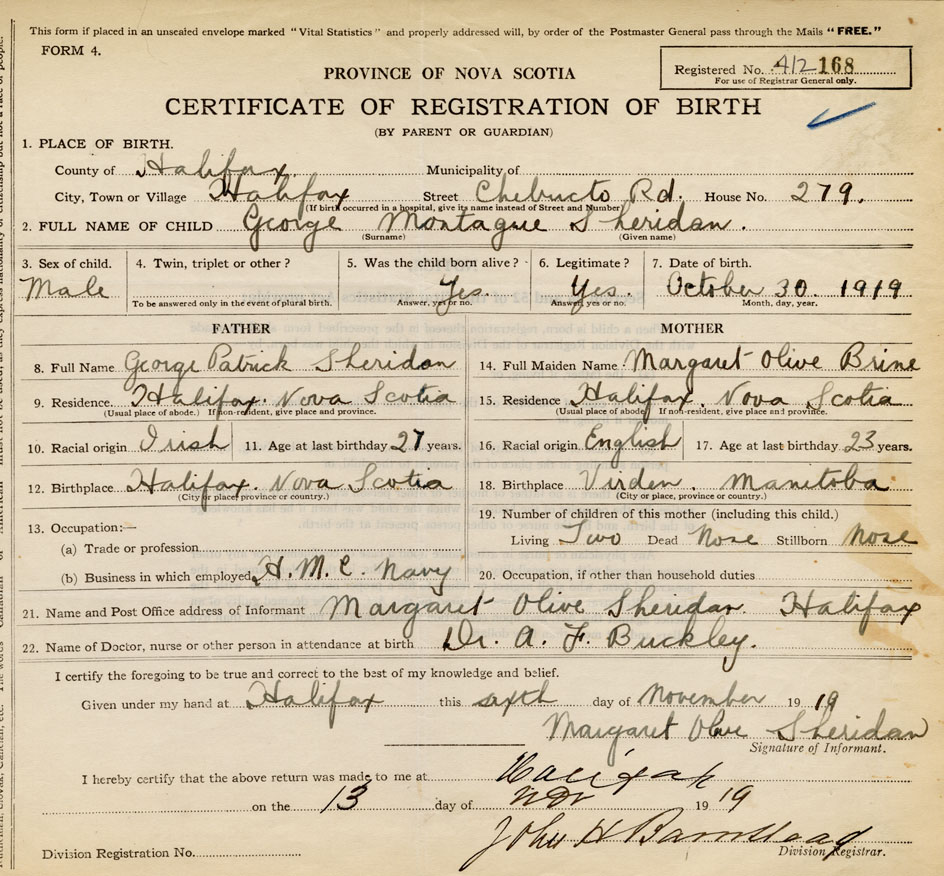 This form if placed in an unsealed envelope marked "Vital Statistics" and properly addressed will, by order of the Postmaster General pass through the Mails "FREE."
FORM 4.
Registered No. 412168
For use of Registrar General only.
PROVINCE OF NOVA SCOTIA
CERTIFICATE OF REGISTRATION OF BIRTH
(BY PARENT OR GUARDIAN)
1. PLACE OF BIRTH.
County of Halifax. Municipality of
City, Town or Village Halifax Street Chebucto Rd. House No. 279.
(If birth occurred in a hospital, give its name instead of Street and Number)
2. FULL NAME OF CHILD George Montague Sheridan.
(Surname) (Given name)
3. Sex of child. 4. Twin, triplet or other? 5. Was the child born alive? 6. Legitimate? 7. Date of birth.
Male Yes. Yes. October 30. 1919
To be answered only in the event of plural birth. Answer, yes or no. Answer, yes or no. Month, day, year.
FATHER MOTHER
8. Full Name George Patrick Sheridan 14. Full Maiden Name Margaret Olive Brine
9. Residence. Halifax. Nova Scotia 15. Residence Halifax. Nova Scotia
(Usual place of abode.) If non-resident, give place and province. (Usual place of abode) If non-resident, give place and province.
10. Racial origin Irish 11. Age at last birthday 27 years. 16. Racial origin English 17. Age at last birthday 23 years.
12. Birthplace Halifax. Nova Scotia 18. Birthplace Virden. Manitoba
(City or place, province or country.) (City or place, province or country.)
13. Occupation:— 19. Number of children of this mother (including this child.)
(a) Trade or profession Living Two Dead None Stillborn None
(b) Business in which employed H.M.C. Navy 20. Occupation, if other than household duties
21. Name and Post Office address of Informant Margaret Olive Sheridan. Halifax
22. Name of Doctor, nurse or other person in attendance at birth Dr. A. F. Buckley.
I certify the foregoing to be true and correct to the best of my knowledge and belief.
Given under my hand at Halifax this sixth day of November 1919
Margaret Olive Sheridan
Signature of Informant.
I hereby certify that the above return was made to me at Halifax
on the 13 day of Nov 1919
John H Barnstead
Division Registrar.
Division Registration No.